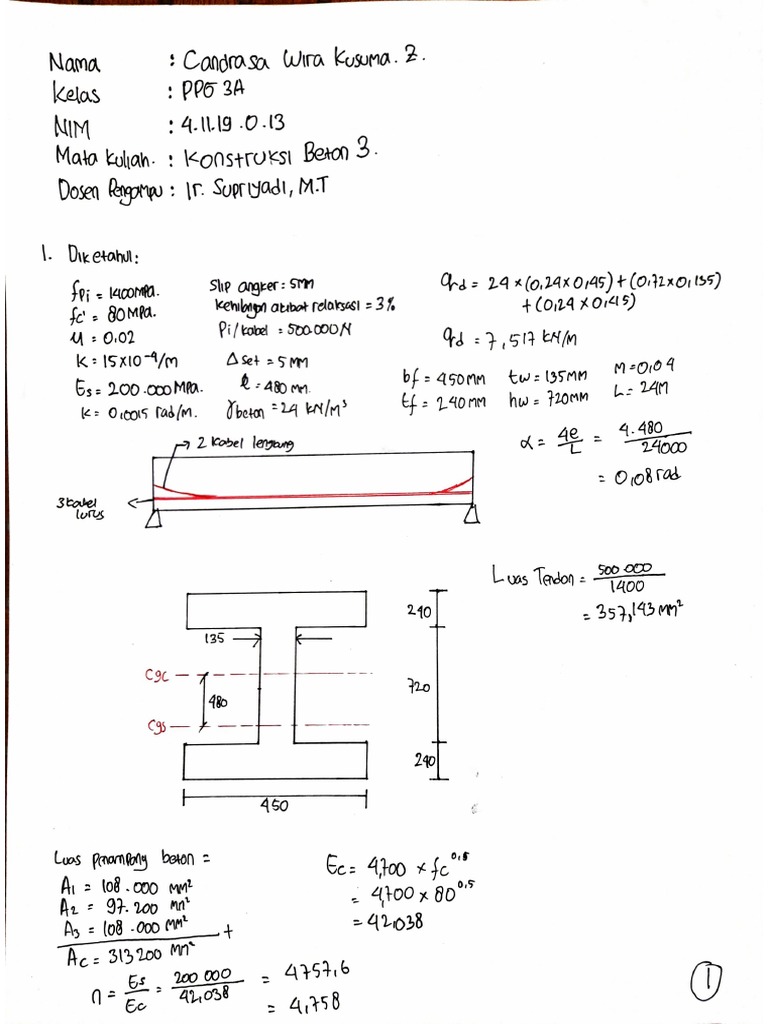 Nama : Candrasa Wira Kusuma. Z.
Kelas : PPG 3A
NIM : 4.11.19.0.13
Mata kuliah. : Konstruksi Beton 3.
Dosen Pengampu : Ir. Supriyadi, M.T
1. Diketahui:
fpi = 1400 MPa.
fc' = 80 MPa.
μ = 0.02
K = 15×10⁻⁴/m
Es = 200.000 MPa.
K = 0,0015 rad/m.
Slip angker = 5MM
Kehilangan akibat relaksasi = 3%
Pi/kabel = 500.000 N
Δ set = 5 MM
e = 480 mm.
γbeton = 24 KN/M³
qd = 24 × (0,24 × 0,45) + (0,72 × 0,135)
+ (0,24 × 0,45)
qd = 7,517 KN/M
bf = 450 MM tw = 135 MM M = 0,04
tf = 240 MM hw = 720 MM L = 24M
α = 4e/L = 4.480/24000
= 0,08 rad
2 kabel lengkung
3 kabel
lurus
Luas Tendon = 500 000/1400
= 357,143 MM²
240
135
cgc
480
720
cgs
240
450
Luas penampang beton =
A1 = 108.000 MM²
A2 = 97.200 MM²
A3 = 108.000 MM² +
Ac = 313 200 MM²
n = Es/Ec = 200 000/42,038 = 4757,6
= 4,758
Ec = 4,700 × fc^0,5
= 4,700 × 80^0,5
= 42,038
1